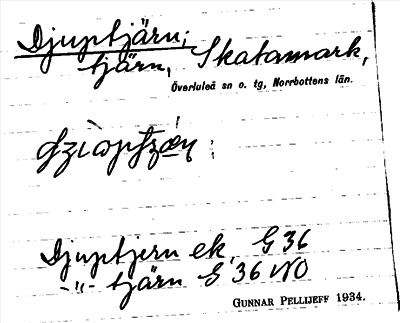 Djuptjärn;
tjärn, Skatamark,
Överluleå sn o. tg, Norrbottens län.
Djuptjern ek. G 36
-"- tjärn G 36 NO
GUNNAR PELLIJEFF 1934.